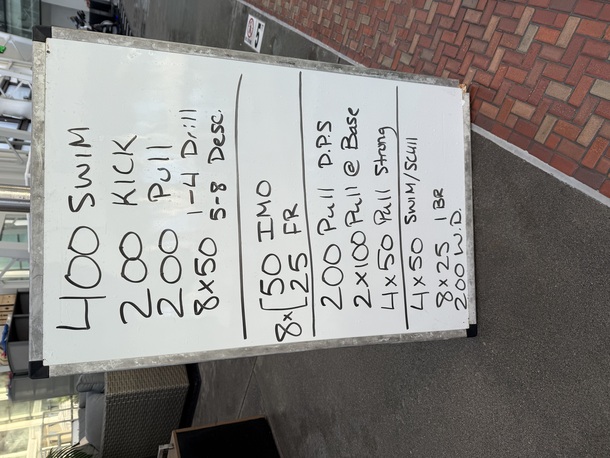 400 SWIM
200 KICK
200 Pull
8x50 1-4 Drill
5-8 Desc.
8x[50 IMO
25 FR
200 Pull D.P.S
2x100 Pull @ Base
4x50 Pull Strong
4x50 SWIM/SCULL
8x25 1BR
200 W.D.